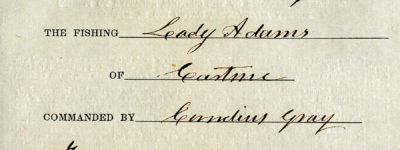 THE FISHING Lady Adams
OF Castine
COMMANDED BY Cornelius Gray